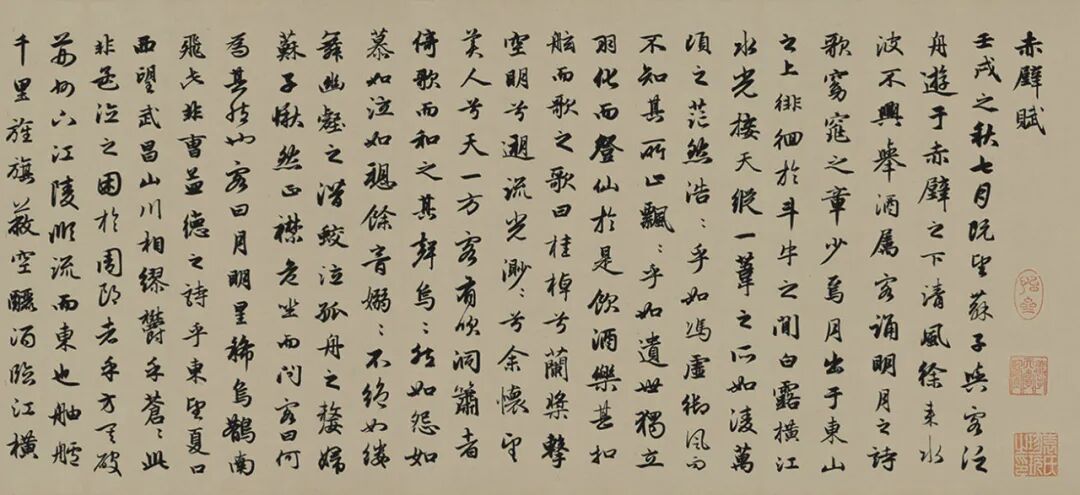 赤壁賦
壬戌之秋七月既望蘇子與客泛
舟遊于赤壁之下清風徐來水
波不興舉酒屬客誦明月之詩
歌窈窕之章少焉月出于東山
之上徘徊於斗牛之間白露橫江
水光接天縱一葦之所如凌萬
頃之茫然浩〻乎如馮虛御風而
不知其所止飄〻乎如遺世獨立
羽化而登仙於是飲酒樂甚扣
舷而歌之歌曰桂棹兮蘭槳擊
空明兮遡流光渺〻兮余懷望
美人兮天一方客有吹洞簫者
倚歌而和之其聲烏〻然如怨如
慕如泣如愬餘音嫋〻不絕如縷
舞幽壑之潛蛟泣孤舟之嫠婦
蘇子愀然正襟危坐而問客曰何
為其然也客曰月明星稀烏鵲南
飛此非曹孟德之詩乎東望夏口
西望武昌山川相繆鬱乎蒼〻此
非孟德之困於周郎者乎方其破
荊州下江陵順流而東也舳艫
千里旌旗蔽空釃酒臨江橫